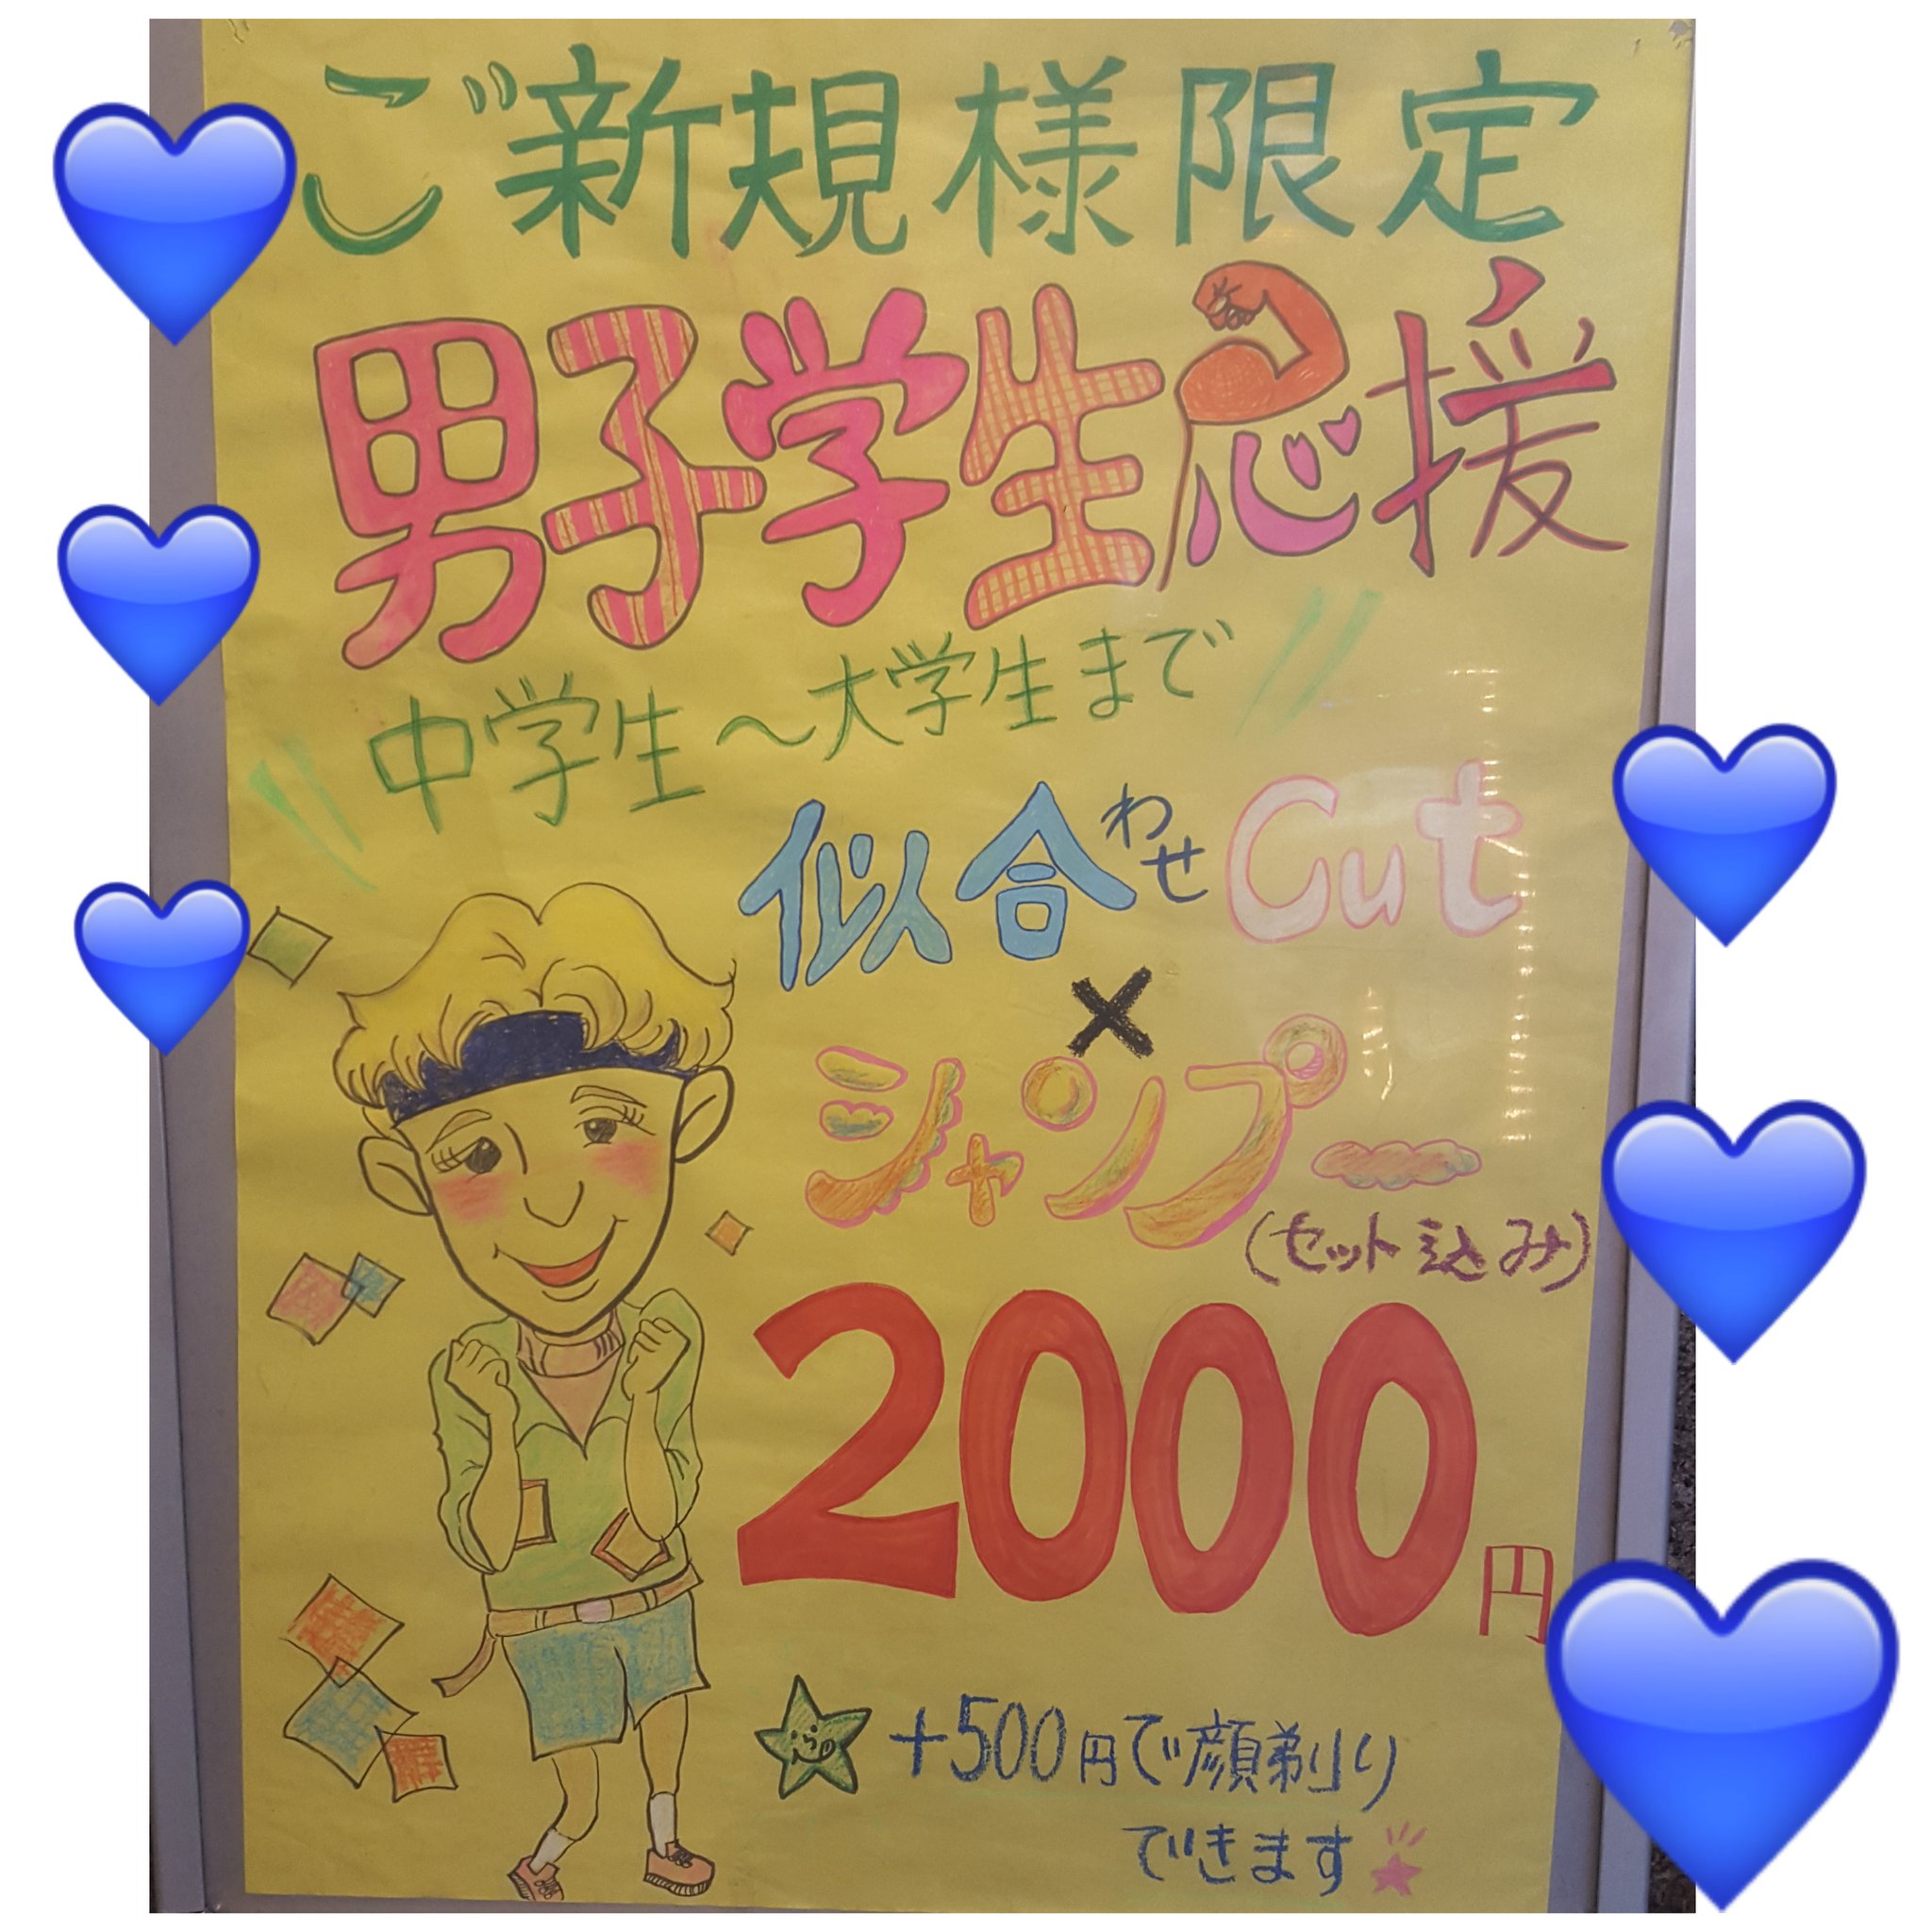 ご新規様限定
男子学生応援
中学生～大学生まで
似合わせCut
×
シャンプー
(セット込み)
2000円
+500円で顔剃り
できます